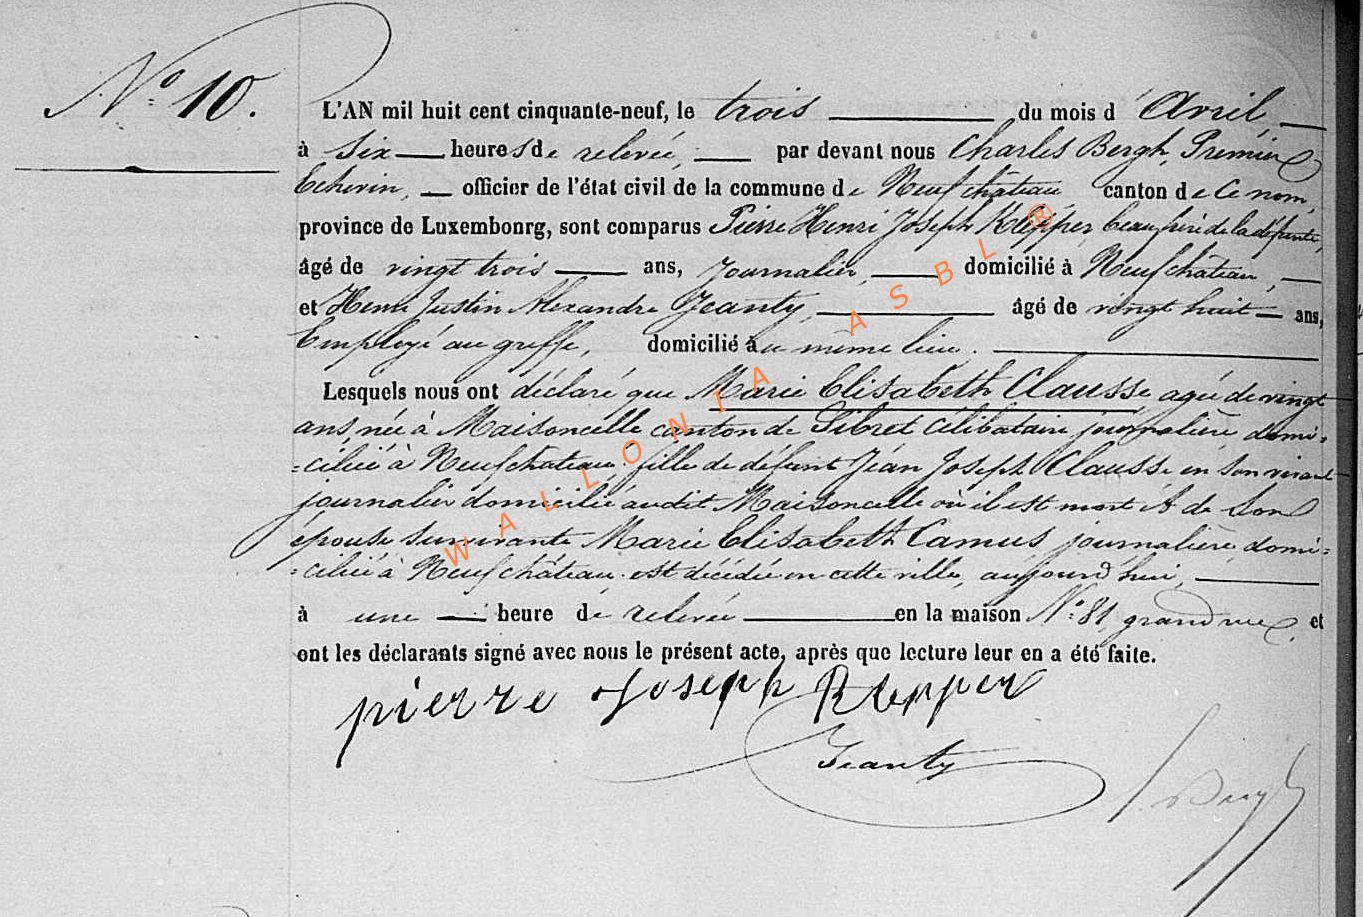 N° 10.
L'AN mil huit cent cinquante-neuf, le trois du mois d'Avril
à Six heures de relevée, par devant nous Charles Bergh, Premier
Echevin, officier de l'état civil de la commune de Neufchâteau canton de Ce nom,
province de Luxembourg, sont comparus Pierre Henri Joseph Klepper, beau frère de la défunte,
âgé de vingt trois ans, Journalier, domicilié à Neufchâteau,
et Henri Justin Alexandre Jeanty, âgé de vingt huit ans,
Employé au greffe, domicilié au même lieu.
Lesquels nous ont déclaré que Marie Elisabeth Clausse agée de vingt
ans, née à Maisoncelle canton de Sibret Célibataire journalière domi=
=ciliée à Neufchateau fille de défunt Jean Joseph Clausse en Son vivant
journalier domicilié audit Maisoncelle où il est mort et de Son
épouse survivante Marie Elisabeth Camus journalière domi=
=ciliée à Neufchâteau. est décédée en cette ville, aujourd'hui,
à une heure de relevée en la maison N° 81, grand rue, et
ont les déclarants signé avec nous le présent acte, après que lecture leur en a été faite.
pierre Joseph Klepper
Jeanty
Bergh
WALLONIA ASBL ®